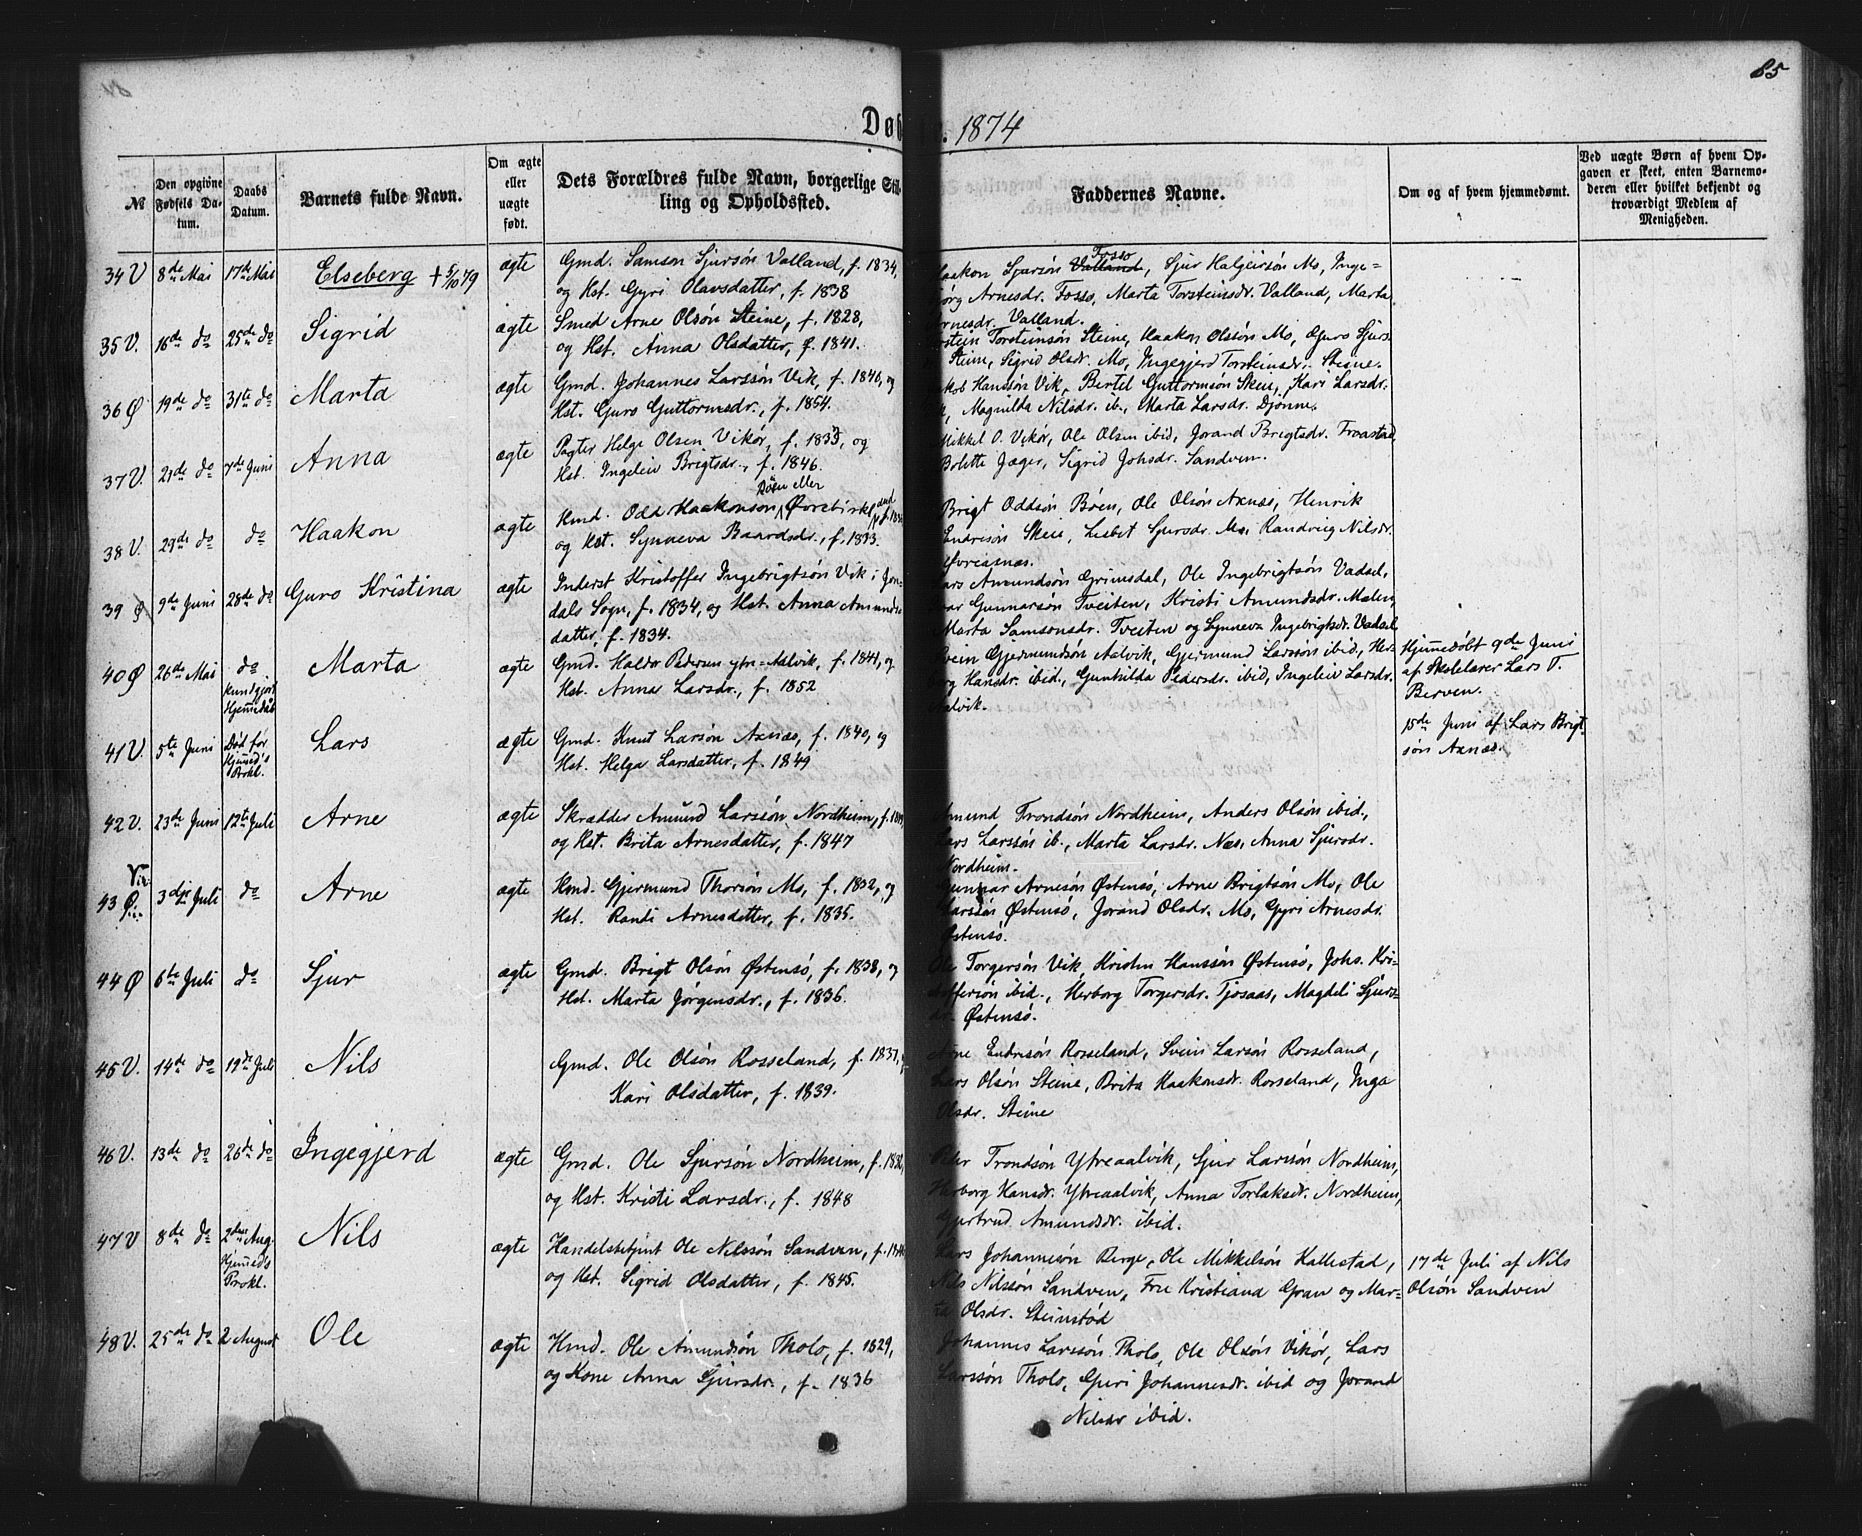 85
Døb . 1874
№
Den opgivne Fødsels Datum.
Daabs Datum.
Barnets fulde Navn.
Om ægte eller uægte født.
Dets Forældres fulde Navn, borgerlige Stilling og Opholdssted.
Faddernes Navne.
Om og af hvem hjemmedøbt.
Ved uægte Børn af hvem Opgaven er skeet, enten Barnemoderen eller hvilket bekjendt og troværdigt Medlem af Menigheden.
34 V 8de Mai 17de Mai Elseberg + 5/10 79 ægte
Gmd. Samson Sjursön Valland, f. 1834,
og Hst. Gyri Olavsdatter, f. 1838
aakon Sjursön Valland Fosso, Sjur Halgeirsön Mo, Inge=
örg Arnesdr. Fosso, Marta Torsteinsdr. Valland, Marta
rnesdr. Valland.
35 V. 16de do 25de do Sigrid ægte
Smed Arne Olsön Steine, f. 1828,
og Hst. Anna Olsdatter, f. 1841.
rstein Torsteinsön Steine, Haakon Olssön Mo, Guro Sjurs
Steim, Sigrid Olsdr. Mo, Ingegjerd Torsteinsdr. Steine.
36 Ø 19de do 31te do Marta ægte
Gmd. Johannes Larssön Vik, f. 1840, og
Hst. Guro Guttormsdr., f. 1854.
akob Hanssön Vik, Bertel Guttormsön Skeie, Kari Larsdr.
, Magnilda Nilsdr. ib., Marta Larsdr. Djönne.
37 V. 21de do 7de Juni Anna ægte
Pagter Helge Olsen Vikör, f. 1833, og
Hst. Ingeleiv Brigtsdr., f. 1846.
Mikkel O. Vikör, Ole Olsen ibid, Jorand Brigtsdr. Traastad,
Bolette Jæger, Sigrid Johsdr. Sandven.
38 V. 29de do do Haakon ægte
Kmd. Odd Haakonson Böen eller Övrebirkeland f. 18
og Hst. Synneva Baardsdr., f. 1833.
Brigt Oddsön Böen, Ole Olsön Axnæs, Henrik
Endresön Skeie, Lisbet Sjursdr. Mo, Randveig Nilsdr.
39 Ø 9de Juni 28de do Guro Kristina ægte
Inderst Kristoffer Ingebrigtsön Vik i Jon=
dals Sogn, f. 1834, og Hst. Anna Amunds
datter, f. 1834.
ars Amundsön Grimsdal, Ole Ingebrigtsön Vadsel,
var Gunnarsön Tveiten, Kristi Amundsdr. Mælen,
Marta Samsonsdr. Tveiten og Synneva Ingebrigtsdr. Vadsel
40 Ø 26de Mai do Kundgjort Hjemmedåb Marta ægte
Gmd. Haldo Pedersen ytre-Aalvik, f. 1841, og
Hst. Anna Larsdr., f. 1852
Svein Gjermundsön Aalvik, Gjermund Larssön ibid, Her
borg Hansdr. ibid., Gunhilda Pedersdr. ibid, Ingeleiv Larsdr.
Aalvik.
Hjemmedöbt 9de Juni
af Skolelærer Lars T.
Berven.
41 V. 5te Juni Död før Hjemmed's Prokl. Lars ægte
Gmd. Knut Larsön Axnæs, f. 1840, og
Hst. Helga Larsdatter, f. 1849
15de Juni af Lars Brigt
sön Axnæs.
42 V. 23de Juni 12te Juli Arne ægte
Skrædder Amund Larssön Nordheim, f. 18
og Hst. Brita Arnesdatter, f. 1847
mund Trondsön Nordheim, Anders Olsön ibid.,
Lars Larssön ib., Marta Larsdr. Næs, Anna Sjursdr.
Nordheim.
43 Ø. 3die Juli do Arne ægte
Kmd. Gjermund Thorsön Mo, f. 1832, og
Hst. Randi Arnesdatter, f. 1835.
Gunnar Arnesön Östensö, Arne Brigtsön Mo, Ole
Larssön Östensö, Jorand Olsdr. Mo, Gyri Arnesdr.
Östensö.
44 Ø 6te Juli do Sjur ægte
Gmd. Brigt Olsön Östensö, f. 1838, og
Hst. Marta Jörgensdr., f. 1836.
Ole Torgersön Vik, Kristen Hanssön Östensö, Johs. Kri=
stoffersön ibid., Herborg Torgersdr. Tjosaas, Magdeli Sjurs=
dr. Östensö.
45 V. 14de do 19de Juli Nils
Gmd. Ole Olsön Rosseland, f. 1837,
Kari Olsdatter, f. 1839.
Arne Endresön Rosseland, Svein Larsön Rosseland,
Lars Olsön Steine, Brita Haakonsdr. Rosseland, Inga
Olsdr. Steine
46 V. 13de do 26de do Ingegjerd ægte
Gmd. Ole Sjursön Nordheim, f. 1832,
og Hst. Kristi Larsdr., f. 1848
Peder Trondsön Ytreaalvik, Sjur Larssön Nordheim,
Herborg Hansdr. Ytreaalvik, Anna Torlaksdr. Nordheim,
Gjertrud Amundsdr. ibid.
47 V 8de do 2den Aug. Hjemmed's Prokl. Nils ægte
Handelsbetjent Ole Nilssön Sandven, f. 18
og Hst. Sigrid Olsdatter, f. 1845.
Lars Johannesön Berge, Ole Mikkelsön Kallestad,
Nils Nilssön Sandven, Fru Kristiana Gran og Mar=
ta Olsdr. Steinstød
17de Juli af Nils
Olsön Sandven
48 V. 25de do 2 August Ole ægte
Kmd. Ole Amundsön Tholo, f. 1829,
og Kone Anna Sjursdr., f. 1836
Johannes Larssön Tholo, Ole Olsön Vikör, Lars
Larssön Tholo, Guri Johannesdr. ibid og Jorand
Nilsdr ibid.